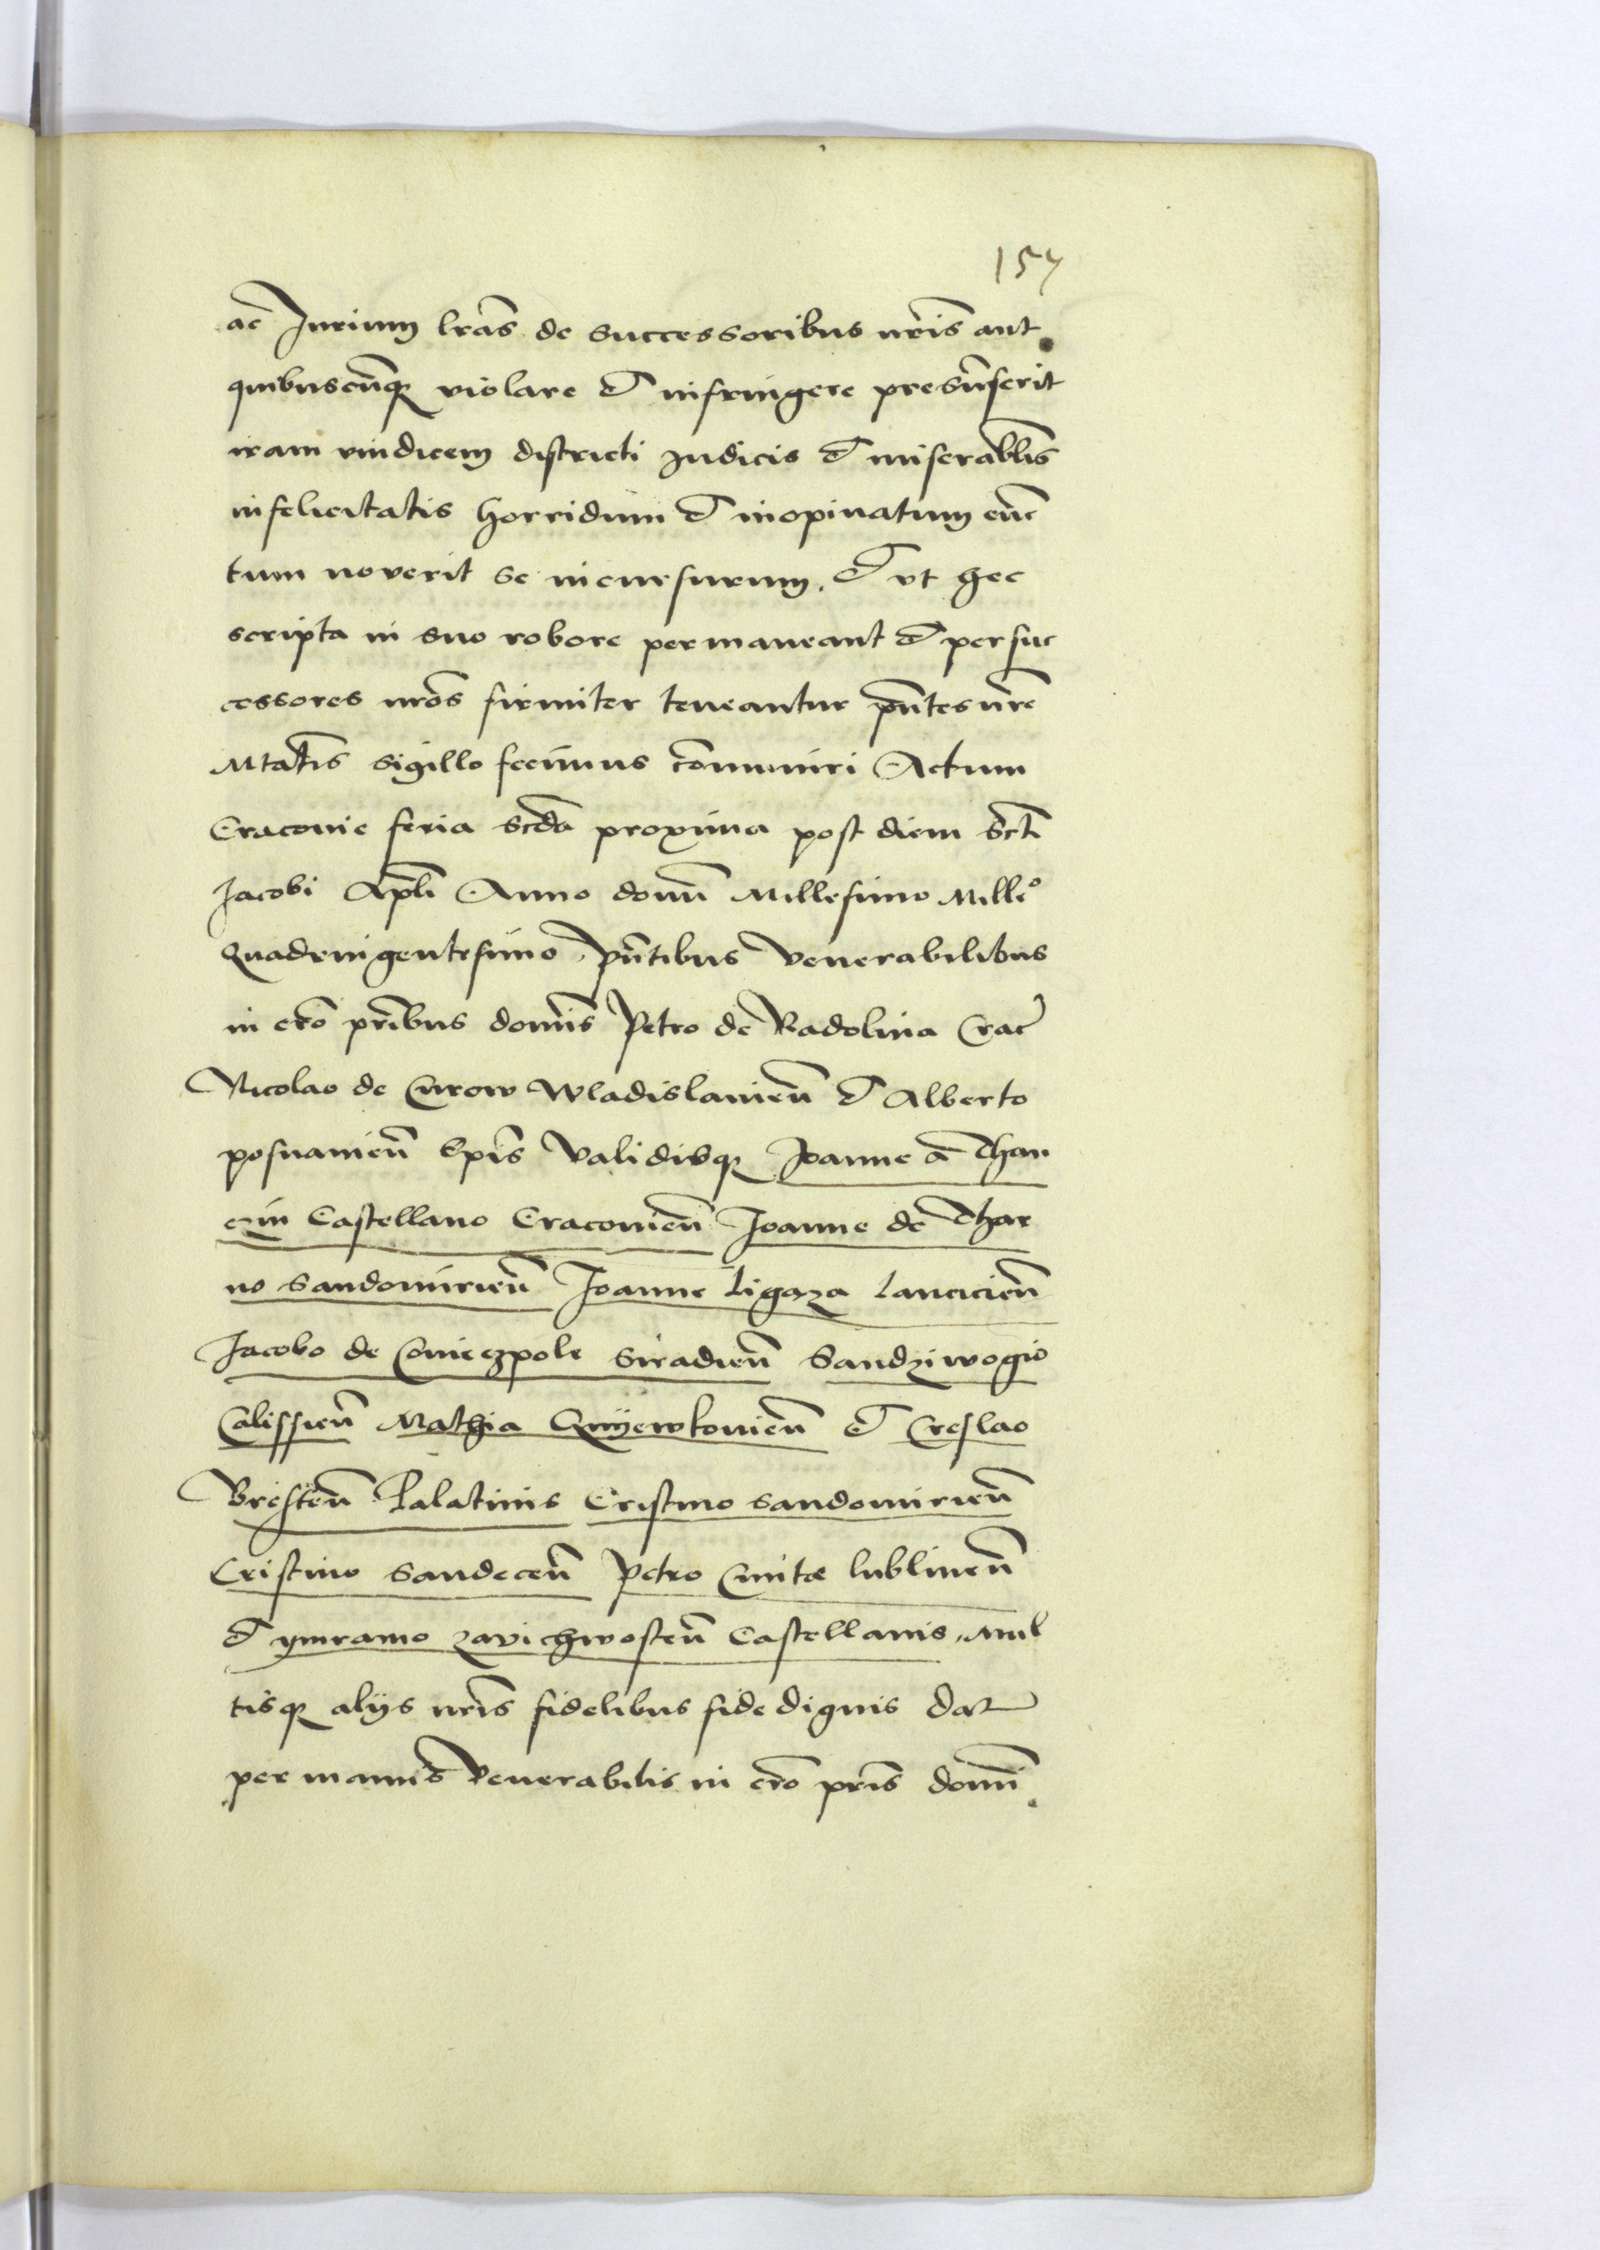 157
ac Jurium lrās de successoribus nrīs aut
quibuscūq violare et infringere presūserit
iram vindicem districti Judicis et miserablīs
infelicitatis horridum et inopinatum evē
tum noverit se incursurum. Et vt hec
scripta in suo robore permaneant et per suc
cessores nrōs firmiter teneantur pn̄tes nrē
Mtatīs sigillo fecimus cōmuniri Actum
Cracovie feria scdā proxima post diem sctī
Jacobi Aplī Anno domī Millesimo Mille°
Quadringentesimo. pn̄tibus Venerabilibus
in crō prībus domīs Petro de Radolina Crac
Nicolao de Curow Wladislavien̄ et Alberto
posnanien̄ Epīs Validisq Joanne a Than
czin Castellano Cracovien̄ Joanne de Thar
no Sandomirien̄ Joanne Ligaza Lancicien̄
Jacobo de Coniecpole Siradien̄ Sandziwogio
Calissien̄ Mathia Gnyewkovien̄ et Creslao
Bresten̄ Palatinis Cristino Sandomirien̄
Cristino Sandecen̄ Petro Cmitæ Lublinen̄
et ymramo zavichwosten̄ Castellanis, mul
tisq alijs nrīs fidelibus fide dignis Dat
per manus Venerabilis in crō prīs domī